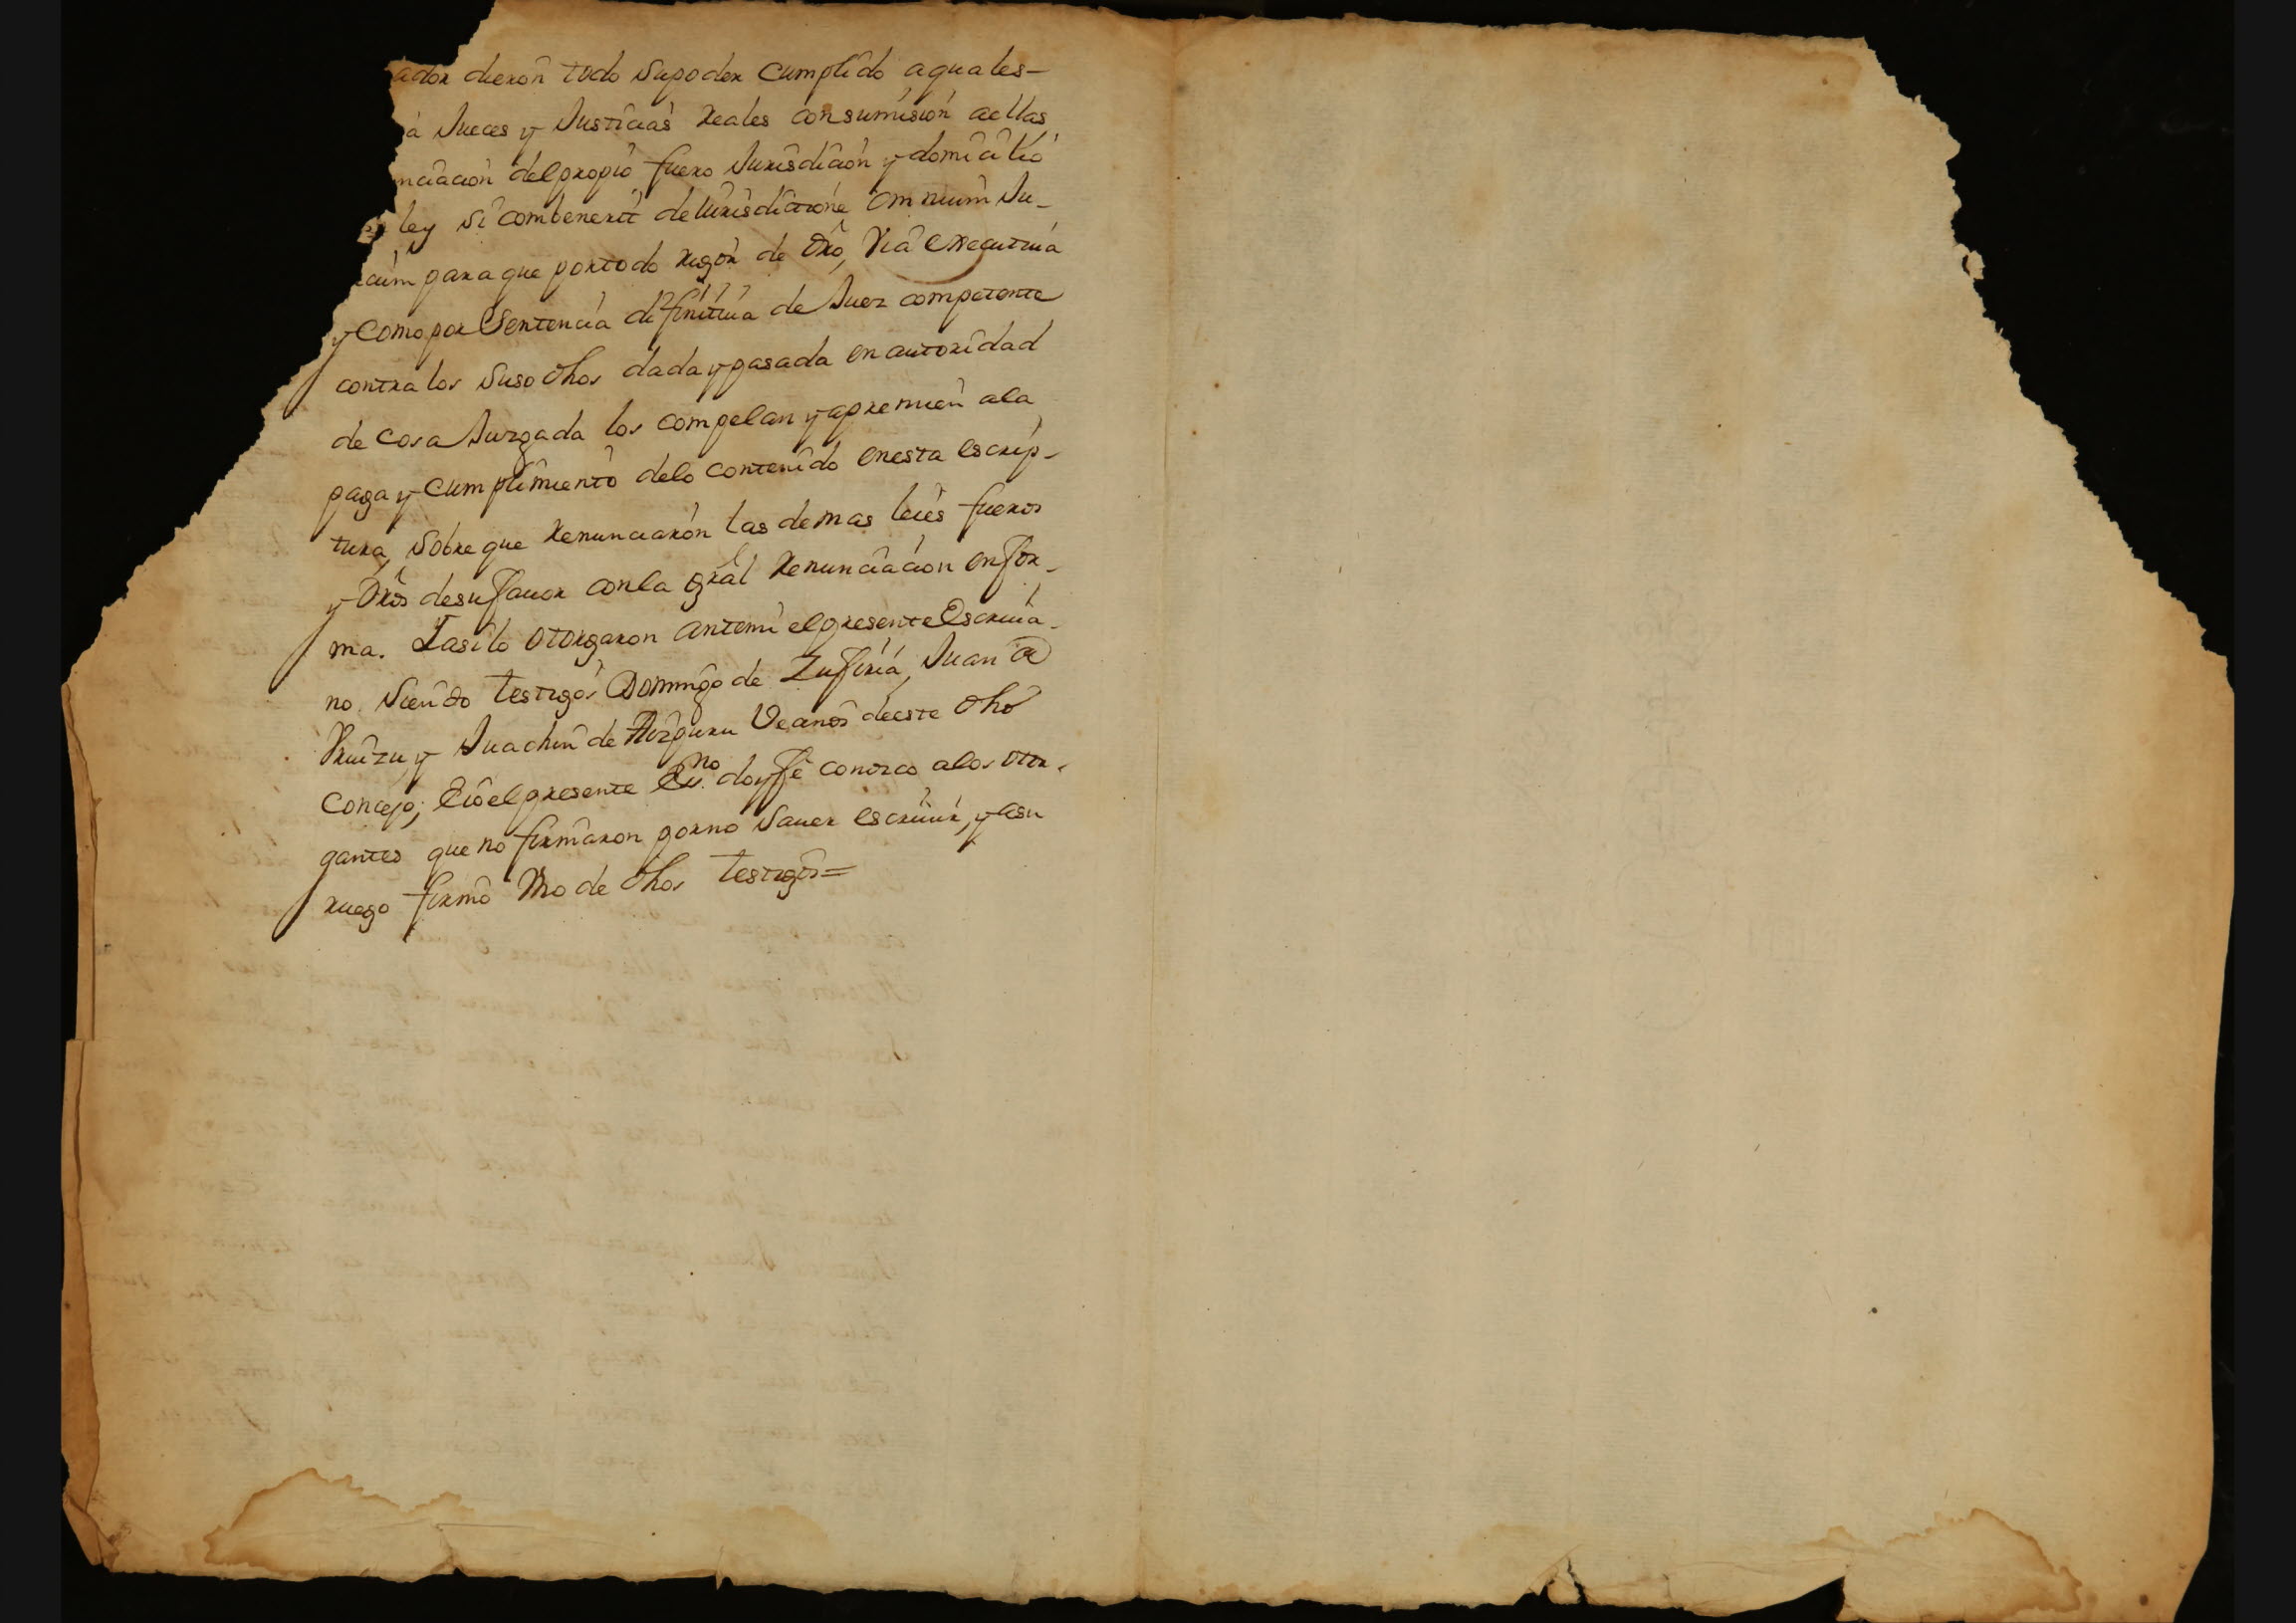 ador dieron todo supoder cumplido aquales-
a Jueces y Justicias Reales consumision aellas
nciacion delpropio fuero Jurisdicion y domicilio
ley si combenerit deJurisdictione omnium Ju-
cum paraque portodo rigor de dro, via executiua
y como por Sentencia difinitiua de Juez competente
contra los suso dhos dada y pasada en autoridad
de cosa Juzgada los compelan y apremien ala
paga y cumplimiento delo contenido enesta escrip-
tura, sobre que Renunciaron las demas leies fueros
y dros desufauor conla gral Renunciacion enfor-
ma. Iasilo otorgaron antemi elpresente Escriua-
no siendo testigos Domingo de Zufiria, Juan de
y Juachin de Veanos deeste dho
Concejo; Eio elpresente Esno. doyffe conozco alos otor-
gantes que no firmaron porno sauer escriuir, y asu
ruego firmo Vno de dhos testigos=